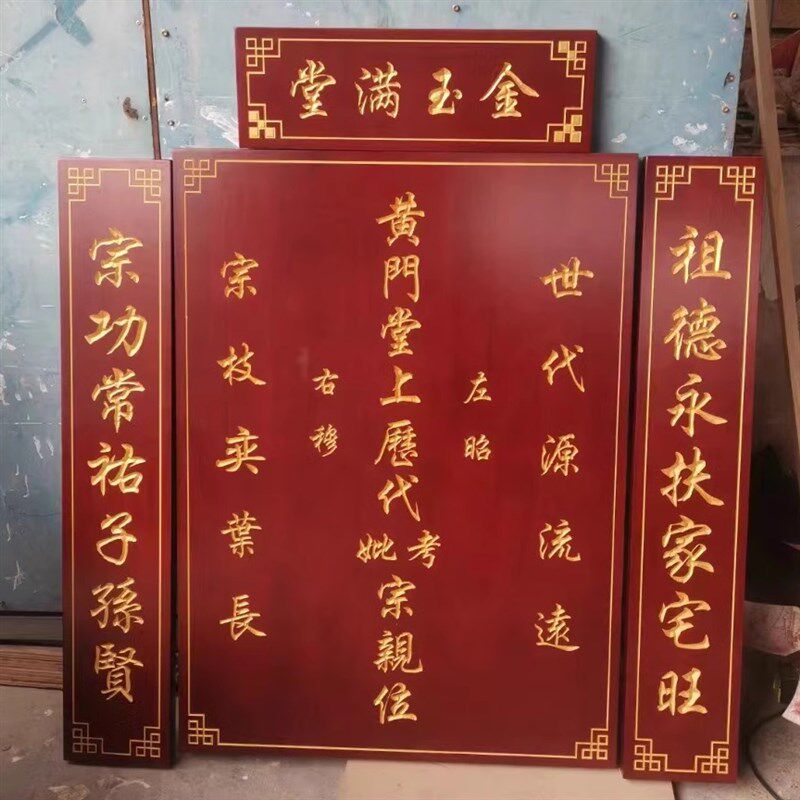 金玉满堂
祖德永扶家宅旺
世代源流遠
左昭
黃門堂上歷代考妣宗親位
右穆
宗枝奕葉長
宗功常祐子孫賢